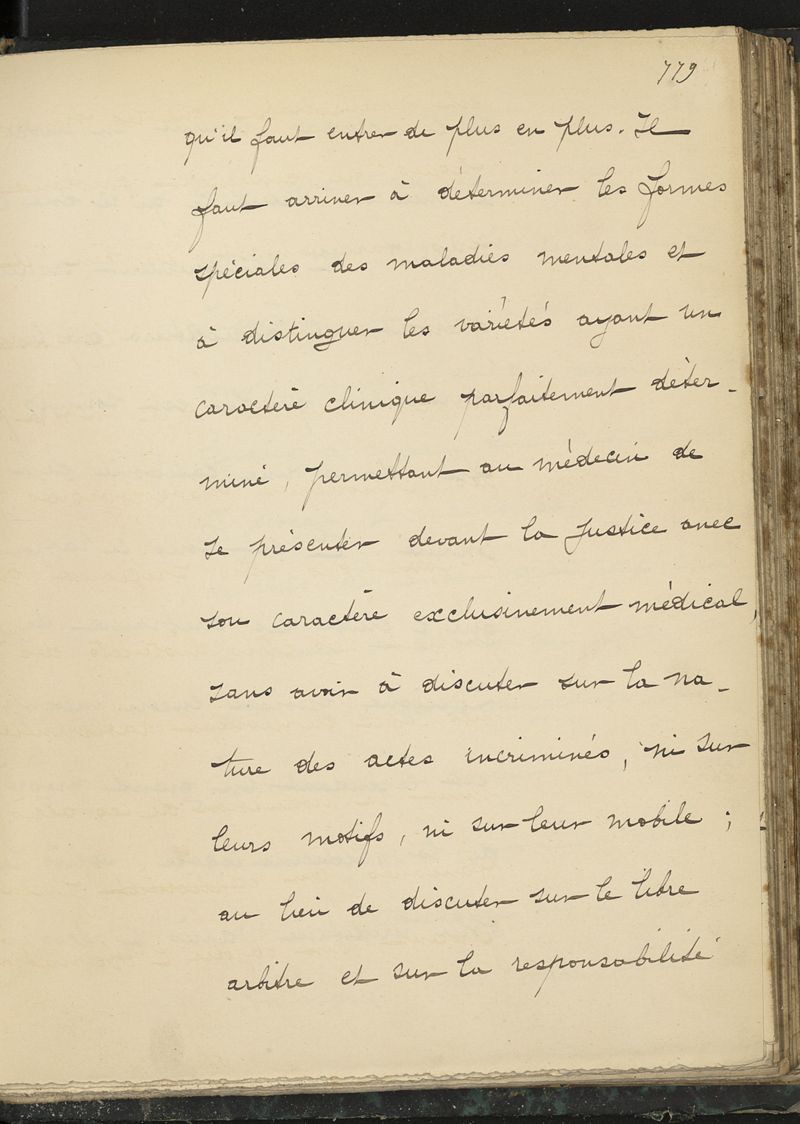 779
qu'il faut entrer de plus en plus. Il
faut arriver à déterminer les formes
spéciales des maladies mentales et
à distinguer les variétés ayant un
caractère clinique parfaitement déter-
miné, permettant au médecin de
se présenter devant la justice avec
son caractère exclusivement médical,
sans avoir à discuter sur la na-
ture des actes incriminés, ni sur
leurs motifs, ni sur leur mobile ;
au lieu de discuter sur le libre
arbitre et sur la responsabilité